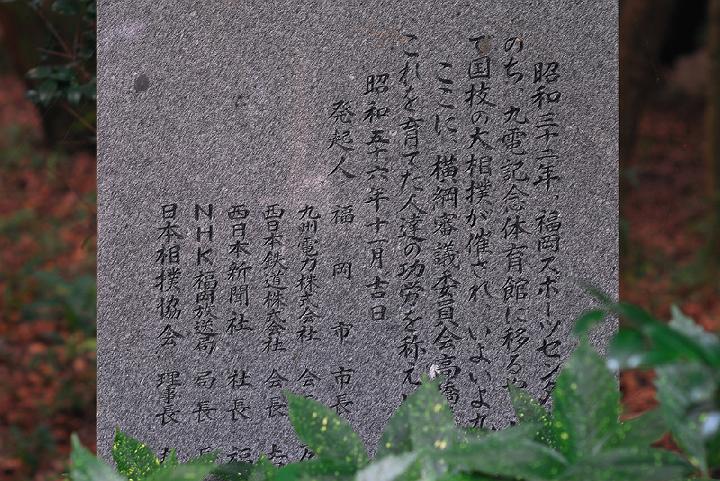 昭和三十二年、福岡スポーツセンタ
のち、九電記念体育館に移るや
で国技の大相撲が催され、いよいよ九
ここに、横綱審議委員会高橋
これを育てた人達の功労を称え
昭和五十六年十一月吉日
発起人 福岡市 市長
九州電力株式会社 会
西日本鉄道株式会社 会長
西日本新聞社 社長 福
NHK福岡放送局 局長
日本相撲協会 理事長